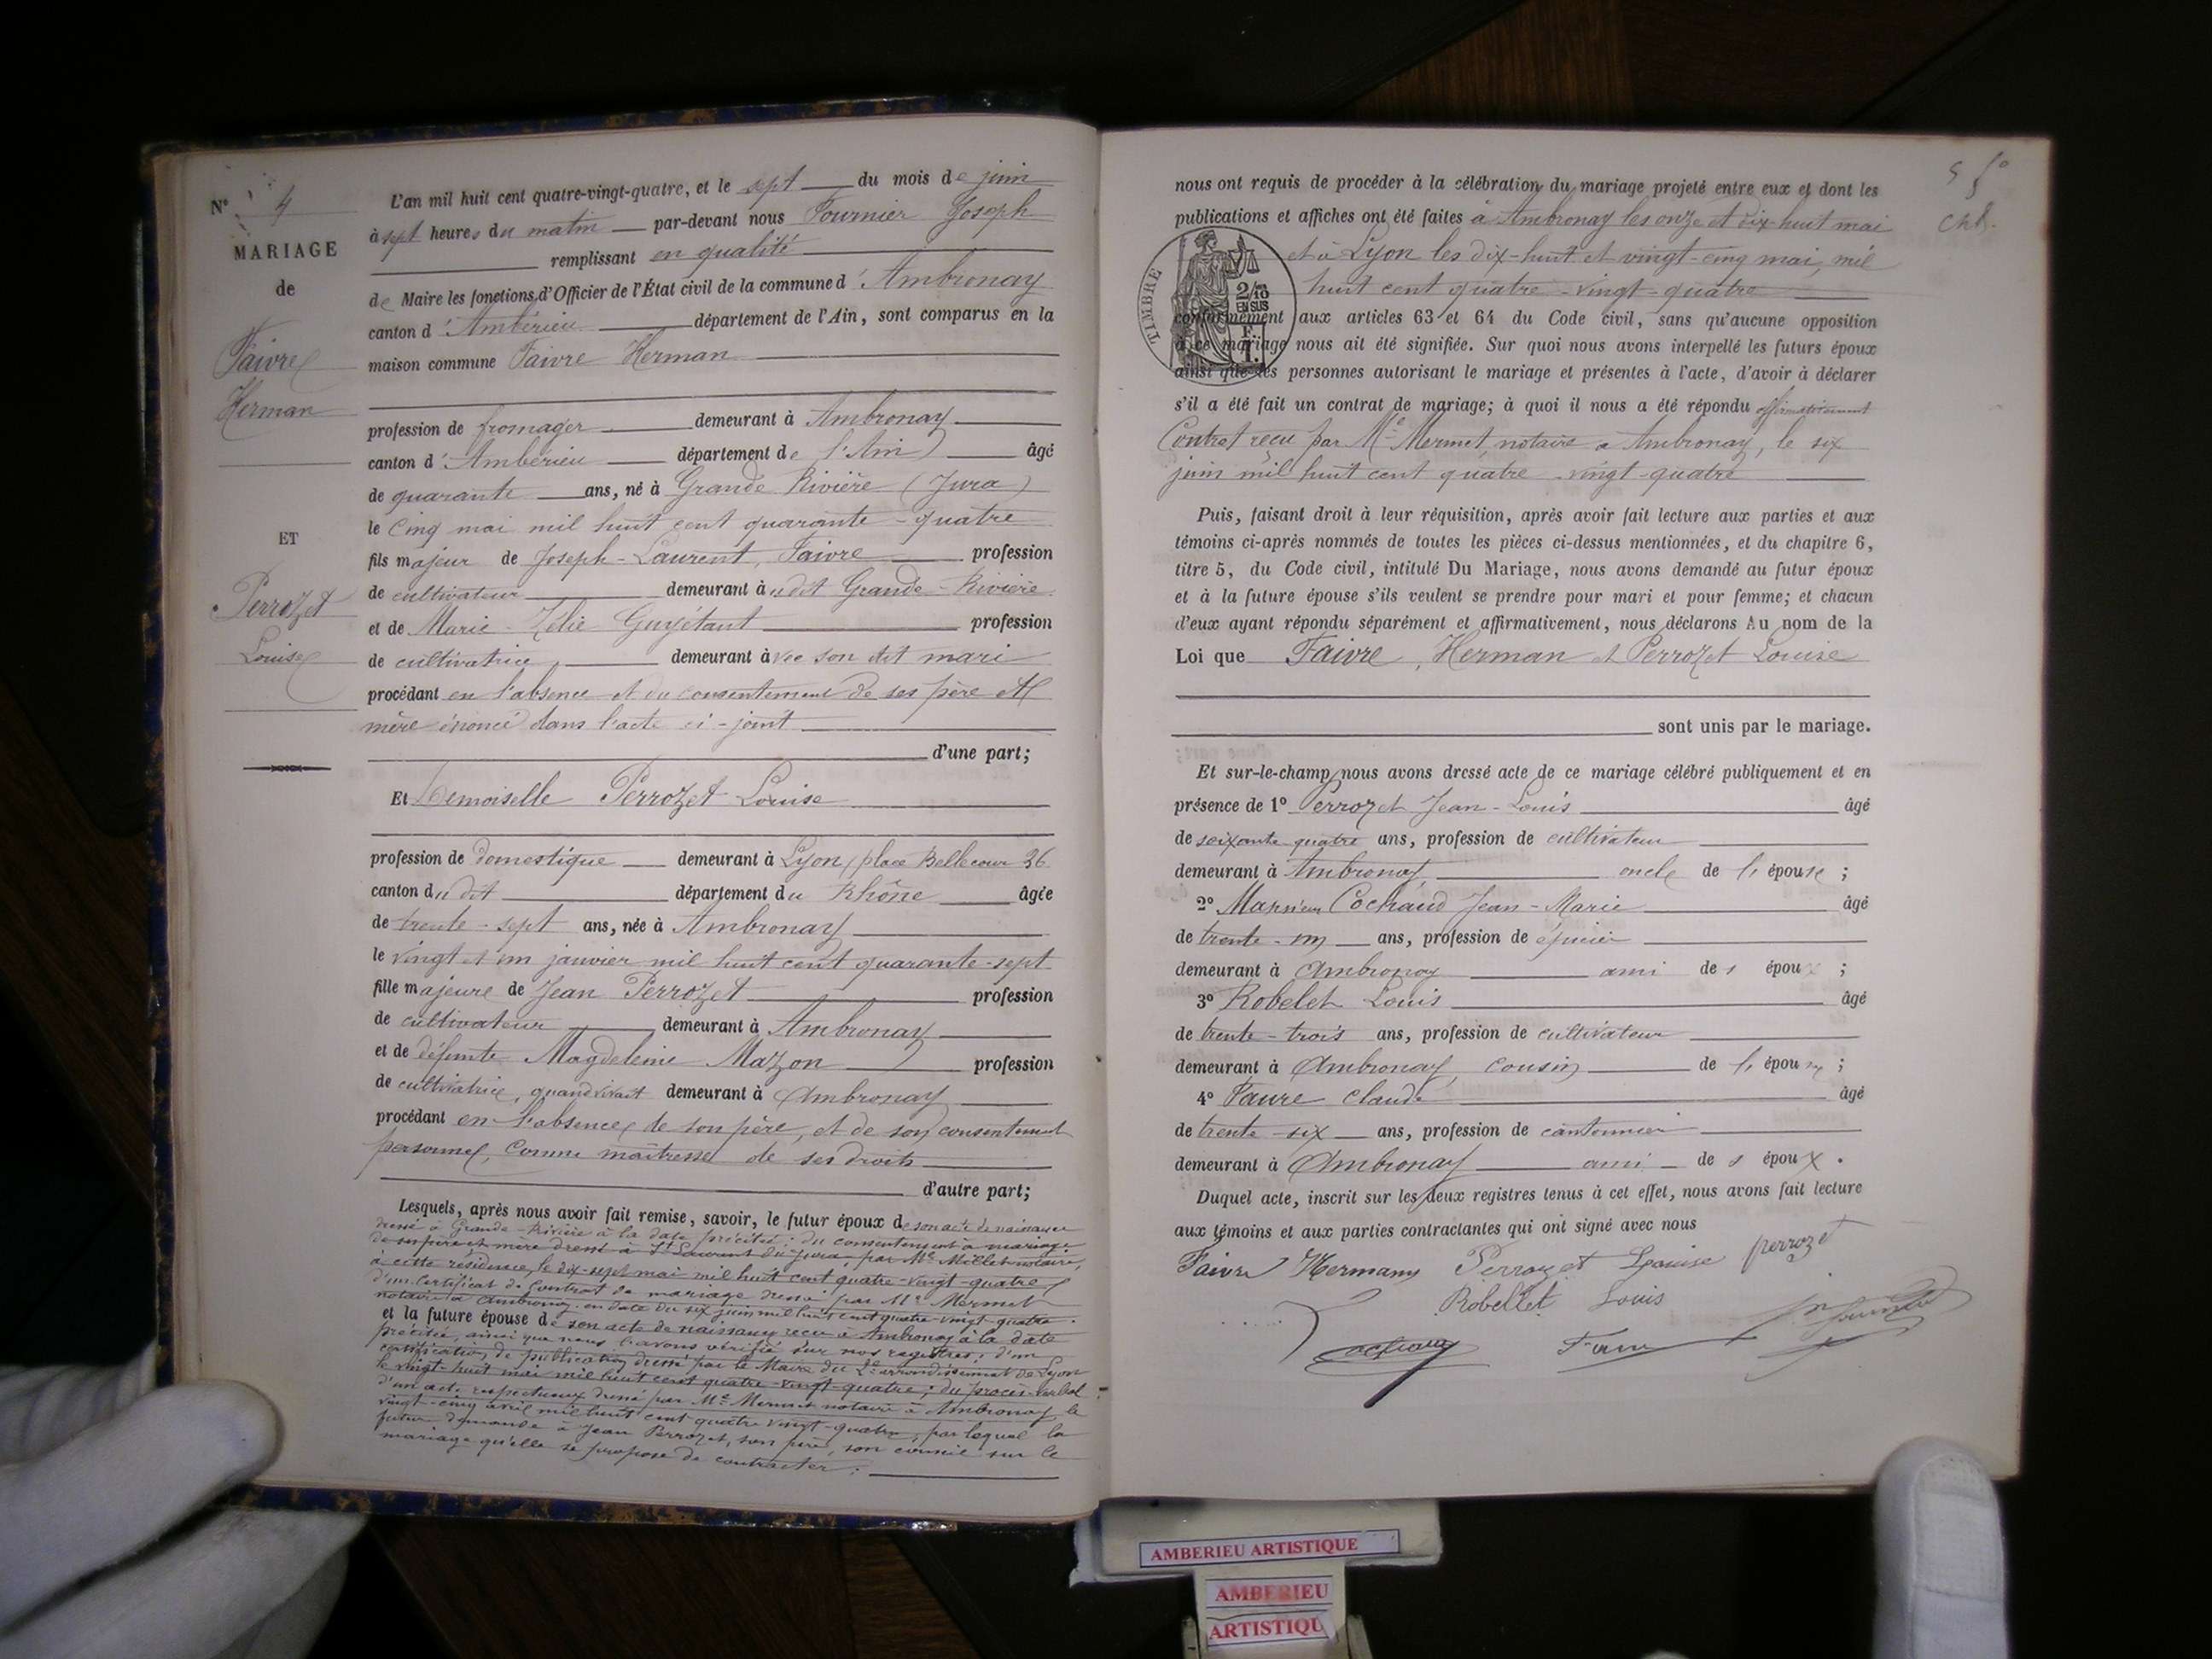 N° 4
MARIAGE
de
Faivre
Herman
ET
Perrozet
Louise
L'an mil huit cent quatre-vingt-quatre, et le sept du mois de juin
à sept heures du matin par-devant nous Fournier Joseph
remplissant en qualité
de Maire les fonctions d'Officier de l'État civil de la commune d'Ambronay
canton d'Ambérieu département de l'Ain, sont comparus en la
maison commune Faivre Herman
profession de fromager demeurant à Ambronay
canton d'Ambérieu département de l'Ain âgé
de quarante ans, né à Grande Rivière (Jura)
le cinq mai mil huit cent quarante-quatre
fils majeur de Joseph-Laurent Faivre profession
de cultivateur demeurant audit Grande-Rivière
et de Marie-Zélie Guyétant profession
de cultivatrice demeurant avec son dit mari
procédant en l'absence et du consentement de ses père et
mère énoncé dans l'acte ci-joint
d'une part;
Et Demoiselle Perrozet Louise
profession de domestique demeurant à Lyon, place Bellecour 26
canton du dit département du Rhône âgée
de trente-sept ans, née à Ambronay
le vingt et un janvier mil huit cent quarante-sept
fille majeure de Jean Perrozet profession
de cultivateur demeurant à Ambronay
et de défunte Magdeleine Mazon profession
de cultivatrice, quand vivait demeurant à Ambronay
procédant en l'absence de son père, et de son consentement
personnel, comme maîtresse de ses droits
d'autre part;
Lesquels, après nous avoir fait remise, savoir, le futur époux de son acte de naissance
dressé à Grande-Rivière à la date précitée; du consentement à mariage
de ses père et mère dressé à St Laurent du Jura, par Me Millet notaire,
à cette résidence, le dix-sept mai mil huit cent quatre-vingt-quatre,
d'un certificat de Contrat de mariage dressé par Me Mermet
notaire à Ambronay en date du six juin mil huit cent quatre-vingt-quatre.
et la future épouse de son acte de naissance reçu à Ambronay à la date
précitée, ainsi que nous l'avons vérifié sur nos registres; d'un
certification de publication dressé par le Maire du 2e arrondissement de Lyon
le vingt-huit mai mil huit cent quatre-vingt-quatre; du procès-verbal
d'un acte respectueux dressé par Me Mermet notaire à Ambronay le
vingt-cinq avril mil huit cent quatre-vingt-quatre, par lequel la
future demande à Jean Perrozet, son père, son conseil sur le
mariage qu'elle se propose de contracter;
nous ont requis de procéder à la célébration du mariage projeté entre eux et dont les
publications et affiches ont été faites à Ambronay les onze et dix-huit mai
et à Lyon les dix-huit et vingt-cinq mai, mil
huit cent quatre-vingt-quatre
TIMBRE
2/10
EN SUS
conformément aux articles 63 et 64 du Code civil, sans qu'aucune opposition
à ce mariage nous ait été signifiée. Sur quoi nous avons interpellé les futurs époux
ainsi que les personnes autorisant le mariage et présentes à l'acte, d'avoir à déclarer
s'il a été fait un contrat de mariage; à quoi il nous a été répondu affirmativement
Contrat reçu par Me Mermet, notaire à Ambronay, le six
juin mil huit cent quatre-vingt-quatre
Puis, faisant droit à leur réquisition, après avoir fait lecture aux parties et aux
témoins ci-après nommés de toutes les pièces ci-dessus mentionnées, et du chapitre 6,
titre 5, du Code civil, intitulé Du Mariage, nous avons demandé au futur époux
et à la future épouse s'ils veulent se prendre pour mari et pour femme; et chacun
d'eux ayant répondu séparément et affirmativement, nous déclarons Au nom de la
Loi que Faivre, Herman et Perrozet Louise
sont unis par le mariage.
Et sur-le-champ nous avons dressé acte de ce mariage célébré publiquement et en
présence de 1° Perrozet Jean-Louis âgé
de soixante-quatre ans, profession de cultivateur
demeurant à Ambronay oncle de l'épouse;
2° Monsieur Cochaud Jean-Marie âgé
de trente-un ans, profession de épicier
demeurant à Ambronay ami des époux;
3° Robelet Louis âgé
de trente-trois ans, profession de cultivateur
demeurant à Ambronay, cousin de l'épouse;
4° Faure Claude âgé
de trente-six ans, profession de cantonnier
demeurant à Ambronay ami des époux.
Duquel acte, inscrit sur les deux registres tenus à cet effet, nous avons fait lecture
aux témoins et aux parties contractantes qui ont signé avec nous
Faivre Hermann Perrozet Louise perrozet
Robellet Louis
Cochaud Faure Jh Fournier
AMBERIEU ARTISTIQUE
AMBERIEU
ARTISTIQU